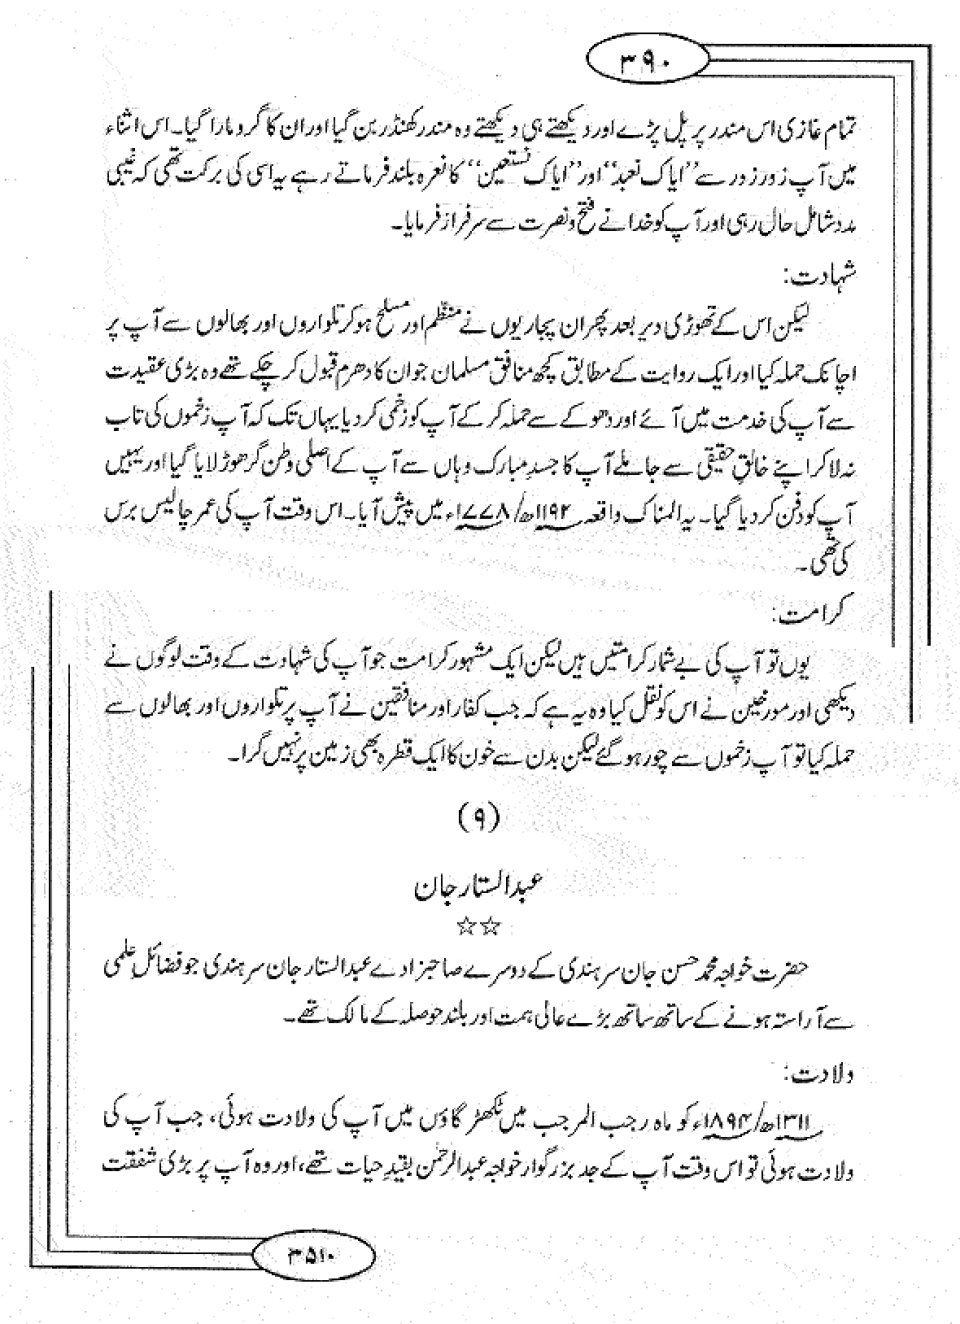 ۳۹۰
تمام غازی اس مندر پر پل پڑے اور دیکھتے ہی دیکھتے وہ مندر کھنڈر بن گیا اور ان کا گرو مارا گیا۔ اس اثناء
میں آپ زور زور سے ’’ایاک نعبد‘‘ اور ’’ایاک نستعین‘‘ کا نعرہ بلند فرماتے رہے یہ اسی کی برکت تھی کہ غیبی
مدد شامل حال رہی اور آپ کو خدا نے فتح و نصرت سے سرفراز فرمایا۔
شہادت:
لیکن اس کے تھوڑی دیر بعد پھر ان پجاریوں نے منظم اور مسلح ہو کر تلواروں اور بھالوں سے آپ پر
اچانک حملہ کیا اور ایک روایت کے مطابق کچھ منافق مسلمان جو ان کا دھرم قبول کر چکے تھے وہ بڑی عقیدت
سے آپ کی خدمت میں آئے اور دھوکے سے حملہ کر کے آپ کو زخمی کر دیا یہاں تک کہ آپ زخموں کی تاب
نہ لا کر اپنے خالقِ حقیقی سے جا ملے آپ کا جسدِ مبارک وہاں سے آپ کے اصلی وطن گرھوڑ لایا گیا اور یہیں
آپ کو دفن کر دیا گیا۔ یہ المناک واقعہ ۱۱۹۲ھ/۱۷۷۸ء میں پیش آیا۔ اس وقت آپ کی عمر چالیس برس
کی تھی۔
کرامت:
یوں تو آپ کی بے شمار کرامتیں ہیں لیکن ایک مشہور کرامت جو آپ کی شہادت کے وقت لوگوں نے
دیکھی اور مورخین نے اس کو نقل کیا وہ یہ ہے کہ جب کفار اور منافقین نے آپ پر تلواروں اور بھالوں سے
حملہ کیا تو آپ زخموں سے چور ہو گئے لیکن بدن سے خون کا ایک قطرہ بھی زمین پر نہیں گرا۔
(۹)
عبدالستار جان
☆☆
حضرت خواجہ محمد حسن جان سرہندی کے دوسرے صاحبزادے عبدالستار جان سرہندی جو فضائلِ علمی
سے آراستہ ہونے کے ساتھ ساتھ بڑے عالی ہمت اور بلند حوصلہ کے مالک تھے۔
ولادت:
۱۳۱۱ھ/۱۸۹۴ء کو ماہ رجب المرجب میں ٹکھڑ گاؤں میں آپ کی ولادت ہوئی، جب آپ کی
ولادت ہوئی تو اس وقت آپ کے جد بزرگوار خواجہ عبدالرحمٰن بقیدِ حیات تھے، اور وہ آپ پر بڑی شفقت
۳۵۱۰